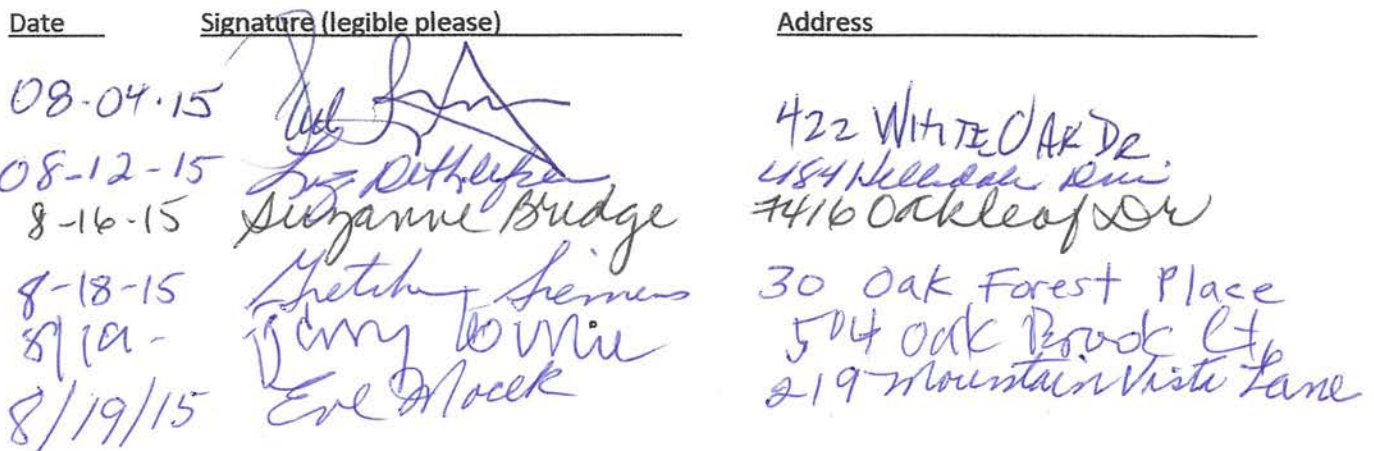 Date Signature (legible please) Address
08-04-15 422 WHITE OAK DR
08-12-15 Liz Dethlefsen 484
8-16-15 Suzanne Bridge 7416 Oakleaf Dr
8-18-15 Gretchen Siemens 30 Oak Forest Place
8/19- 504 Oak Brook Ct,
8/19/15 Eve Mocek 219 Mountain Vista Lane